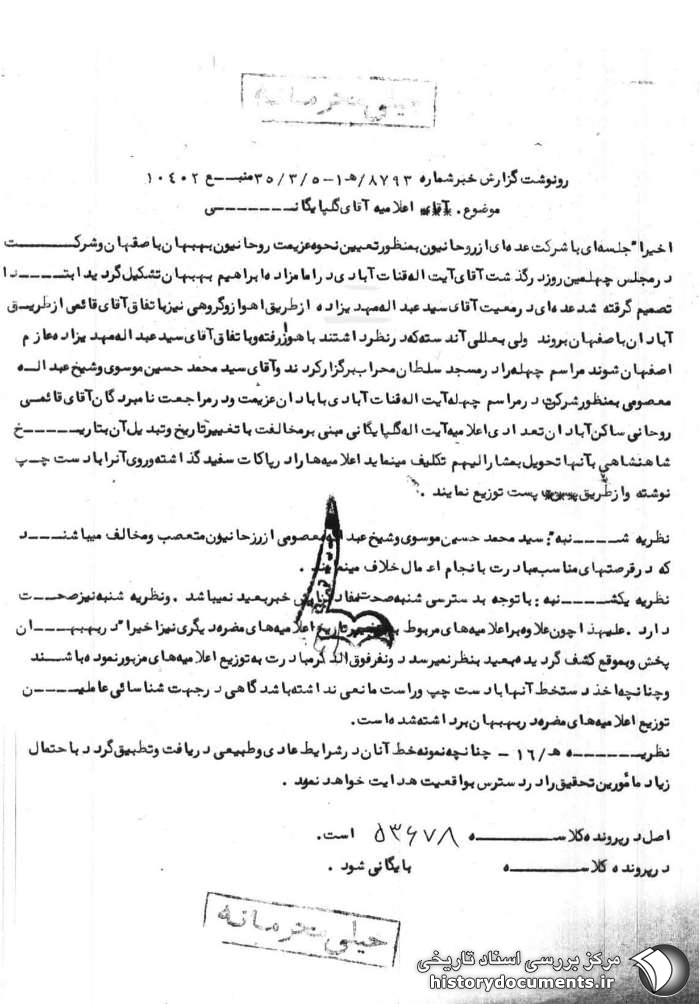 خیلی محرمانه
رونوشت گزارش خبر شماره ۸۷۹۳/هـ۱-۳۵/۳/۵ منبـــع ۱۰۴۰۲
موضوع. اعلامیه آقای گلپایگانـــــــی
اخیرا" جلسه‌ای با شرکت عده‌ای از روحانیون بمنظور تعیین نحوه عزیمت روحانیون بهبهان باصفهان و شرکـــــت
در مجلس چهلمین روز درگذشت آقای آیت اله قنات آبادی در امامزاده ابراهیم بهبهان تشکیل گردید ابتـــــدا
تصمیم گرفته شد عده‌ای در معیت آقای سید عبداله مهدیزاده از طریق اهواز و گروهی نیز باتفاق آقای قائمی از طریـــق
آبادان باصفهان بروند ولی بعللی آن دسته که در نظر داشتند باهواز رفته و باتفاق آقای سید عبداله مهدیزاده عازم
اصفهان شوند مراسم چهله را در مسجد سلطان محراب برگزار کردند و آقای سید محمد حسین موسوی و شیخ عبدالـــه
معصومی بمنظور شرکت در مراسم چهله آیت اله قنات آبادی بابادان عزیمت و در مراجعت نامبردگان آقای قائمـــی
روحانی ساکن آبادان تعدادی اعلامیه آیت اله گلپایگانی مبنی بر مخالفت با تغییر تاریخ و تبدیل آن بتاریـــــخ
شاهنشاهی بآنها تحویل بمشارالیهم تکلیف مینماید اعلامیه‌ها را در پاکات سفید گذاشته و روی آنرا با دست چـــپ
نوشته و از طریق پست توزیع نمایند .
نظریه شـــــنبه : سید محمد حسین موسوی و شیخ عبداله معصومی از روحانیون متعصب و مخالف میباشنـــــد
که در فرصتهای مناسب مبادرت بانجام اعمال خلاف مینمایند .
نظریه یکشـــــنبه : با توجه بدسترسی شنبه صحت مفاد گزارش خبر بعید نمیباشد . و نظریه شنبه نیز صحـــت
دارد . علیهذا چون علاوه بر اعلامیه‌های مربوط به تغییر تاریخ اعلامیه‌های مضره دیگری نیز اخیرا" در بهبهـــــان
پخش و بموقع کشف گردیده بعید بنظر نمیرسد دو نفر فوق الذکر مبادرت به توزیع اعلامیه‌های مزبور نموده باشـــند
و چنانچه اخذ دستخط آنها با دست چپ و راست مانعی نداشته باشد گاهی در جهت شناسائی عاملیـــــن
توزیع اعلامیه‌های مضره در بهبهان برداشته شده است.
نظریـــــــه هـ/۱۶ - چنانچه نمونه خط آنان در شرایط عادی و طبیعی دریافت و تطبیق گردد باحتمال
زیاد مأمورین تحقیق را در دسترس بواقعیت هدایت خواهد نمود .
اصل در پرونده کلاســـــــه ۵۳۶۷۸ است.
در پرونده کلاســـــــه بایگانی شود .
خیلی محرمانه
مرکز بررسی اسناد تاریخی
historydocuments.ir